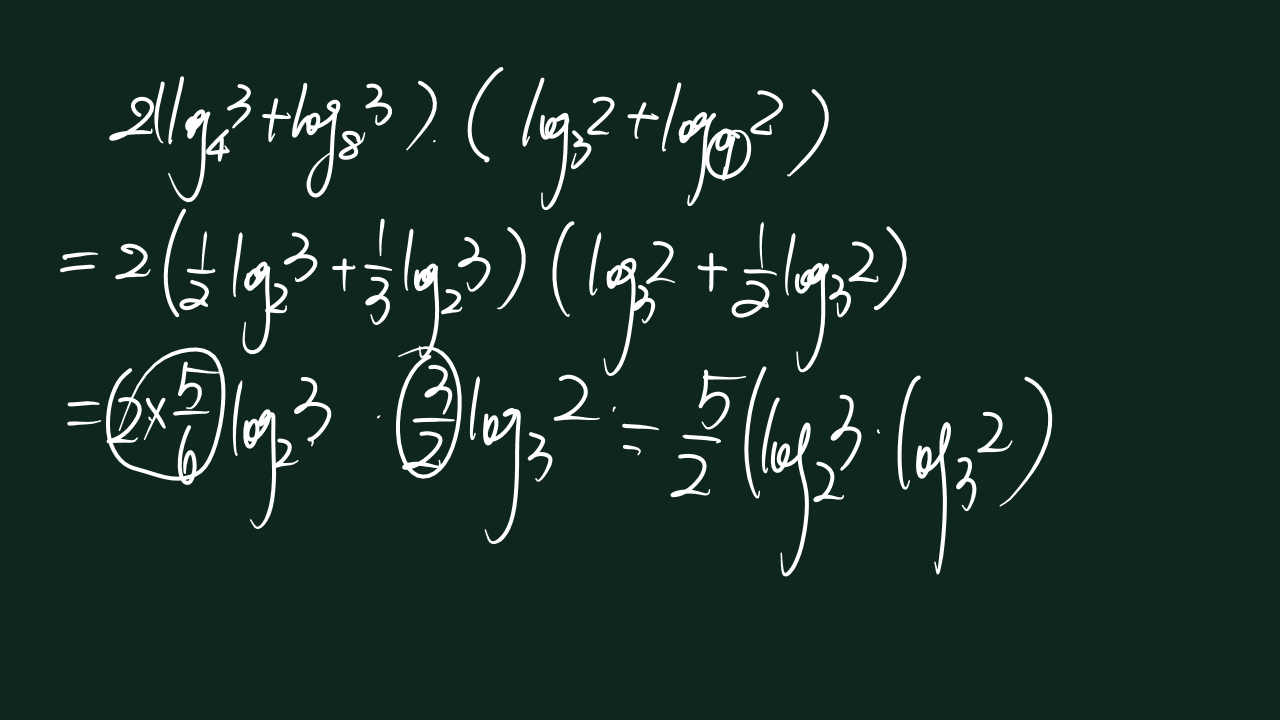 2(log₄3+log₈3).(log₃2+log₉2)
=2(1/2 log₂3+1/3 log₂3)(log₃2+1/2 log₃2)
=2×5/6 log₂3 · 3/2 log₃2 = 5/2 (log₂3 · log₃2)